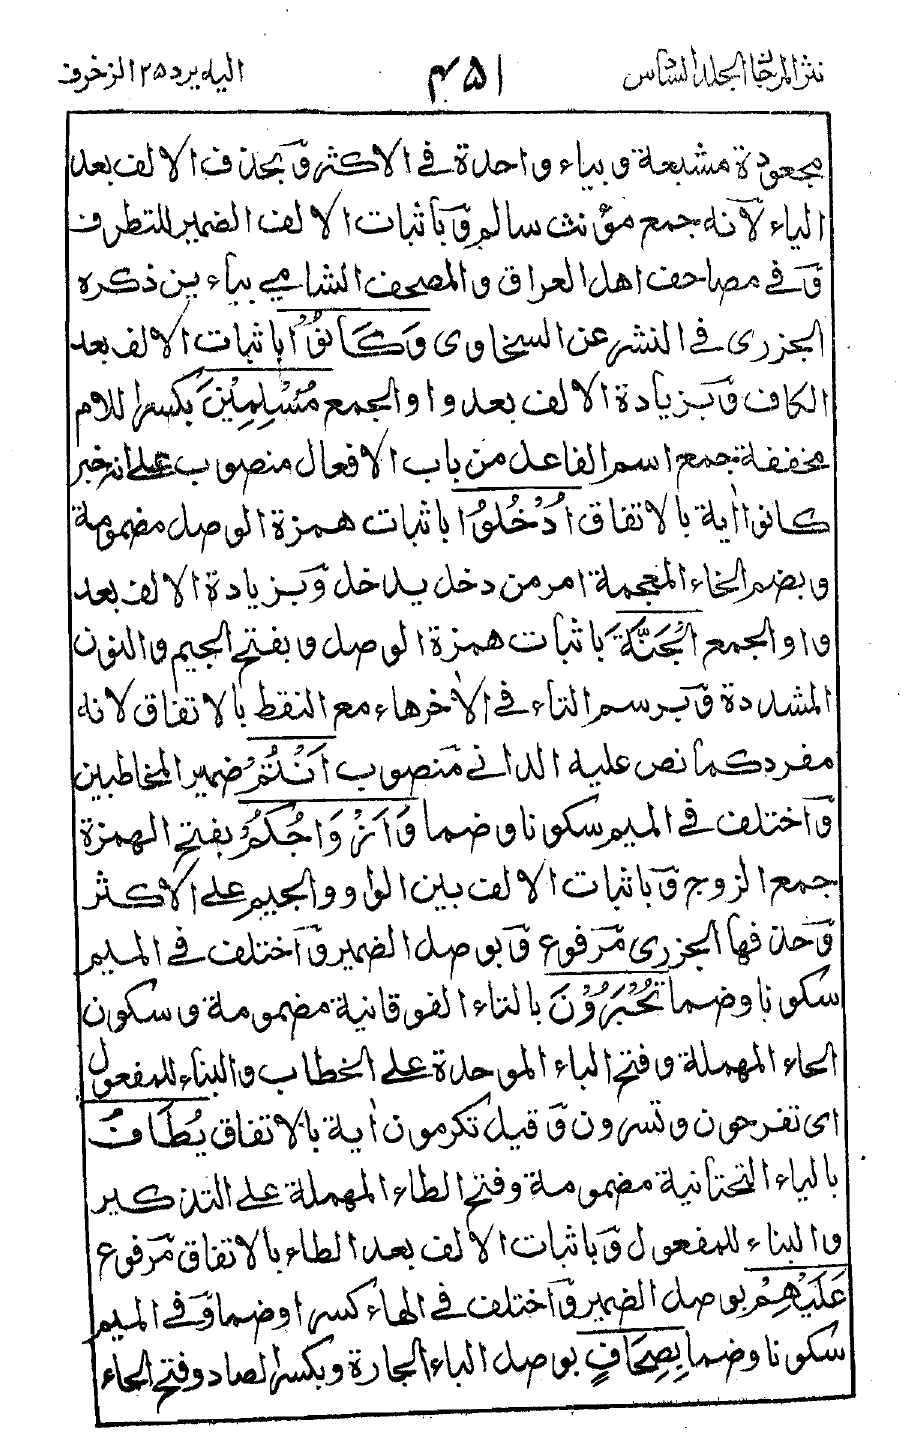 نثر المرجان المجلد السادس
۴۵۱
اليه يرد ۲۵ الزخرف
مجعودة مشبعة و بياء واحدة في الاكثر وَبحذف الالف بعد
الياء لاَنه جمع مؤنث سالم وَبأثبات الالف الضمير للتطرف
وَفي مصاحف اهل العراق والمصحف الشامي بياءين ذكره
الجزرى في النشر عن السخاوى وَكَانُوْا باثبات الالف بعد
الكاف وَبزيادة الالف بعد واو الجمع مُسْلِمِيْنَ بكسر اللام
مخففة جمع اسم الفاعل من باب الافعال منصوب على انه خبر
كانوا اٰية بالاتفاق اُدْخُلُوْا باثبات همزة الوصل مضمومة
وبضم الخاء المعجمة امر من دخل يدخل وَبزيادة الالف بعد
واو الجمع الْجَنَّةَ باثبات همزة الوصل و بفتح الجيم والنون
المشددة وَبرسم التاء في الاٰخر هاء مع النقط بالاتفاق لانه
مفرد كما نص عليه الداني مَنصوب اَنْتُمْ ضمير المخاطبين
وَاختلف في الميم سكونا وضما وَاَزْوَاجُكُمْ بفتح الهمزة
جمع الزوج وَباثبات الالف بين الواو والجيم على الاكثر
وَحذفها الجزرى مَرفوع وَبوصل الضمير وَاختلف في الميم
سكونا وضما تُحْبَرُوْنَ بالتاء الفوقانية مضمومة وسكون
الحاء المهملة وفتح الباء الموحدة على الخطاب والبناء للمفعول
اى تفرحون وتسرون وَقيل تكرمون اٰية بالاتفاق يُطَافُ
بالياء التحتانية مضمومة وفتح الطاء المهملة على التذكير
والبناء للمفعول وَباثبات الالف بعد الطاء بالاتفاق مَرفوع
عَلَيْهِمْ بوصل الضمير وَاختلف في الهاء كسرا وضما وَفي الميم
سكونا وضما بِصِحَافٍ بوصل الباء الجارة وبكسر الصاد وفتح الحاء